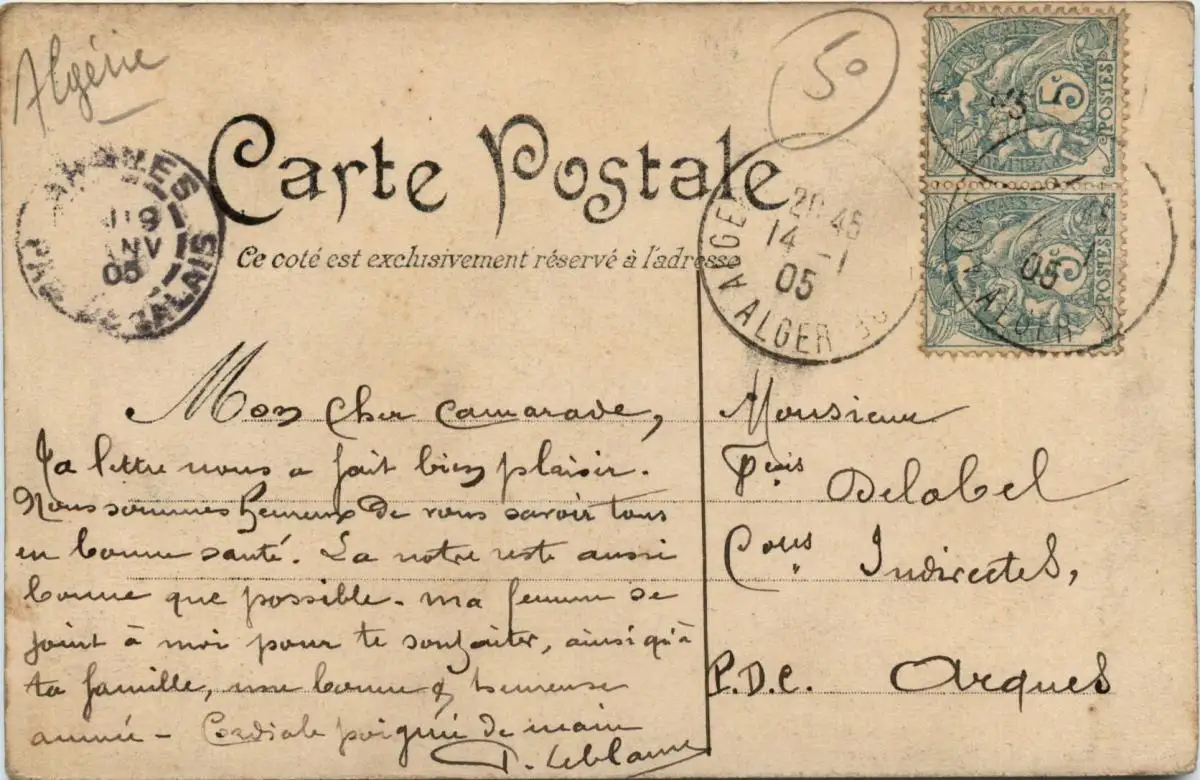 Algérie
50
5
POSTES
05
5
POSTES
05
ALGER
Carte Postale
Ce coté est exclusivement réservé à l'adresse
ALGER ALGER
20 45
14 - 1
05
ARQUES
19
JANV
05
PAS DE CALAIS
Mon Cher Camarade,
Ta lettre nous a fait bien plaisir.
Nous sommes heureux de vous savoir tous
en bonne santé. La notre reste aussi
bonne que possible. ma femme se
joint à moi pour te souhaiter, ainsi qu'à
ta famille, une bonne & heureuse
année - Cordiale poignée de main
Leblanc
Monsieur
Delobel
Indirectes,
P.D.C. Arques